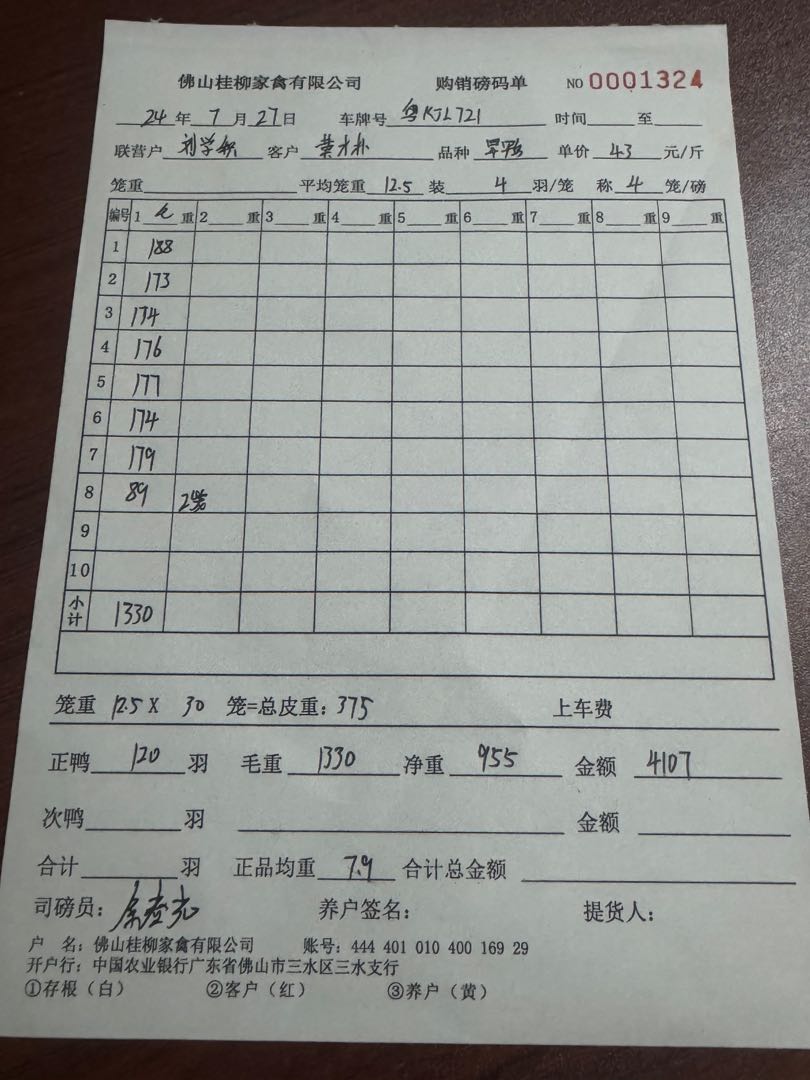 佛山桂柳家禽有限公司 购销磅码单 NO 0001324
24年 7月 27日 车牌号 粤KJL721 时间 至
联营户 刘学 客户 品种 单价 43 元/斤
笼重 平均笼重 12.5 装 4 羽/笼 称 4 笼/磅
编号 1 重 2 重 3 重 4 重 5 重 6 重 7 重 8 重 9 重
1 188
2 173
3 174
4 176
5 177
6 174
7 179
8 89 2笼
9
10
小计 1330
笼重 12.5 X 30 笼=总皮重: 375 上车费
正鸭 120 羽 毛重 1330 净重 955 金额 4107
次鸭 羽 金额
合计 羽 正品均重 7.9 合计总金额
司磅员: 养户签名: 提货人:
户 名: 佛山桂柳家禽有限公司 账号: 444 401 010 400 169 29
开户行: 中国农业银行广东省佛山市三水区三水支行
①存根（白） ②客户（红） ③养户（黄）